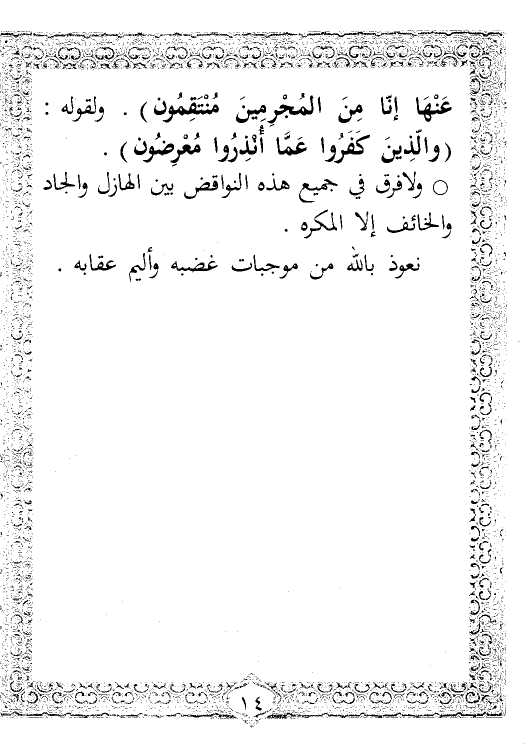 عَنْهَا إنَّا مِنَ المُجْرِمِينَ مُنْتَقِمُون) . ولقوله :
(والَّذِينَ كَفَرُوا عَمَّا أُنْذِرُوا مُعْرِضُون) .
○ ولافرق في جميع هذه النواقض بين الهازل والجاد
والخائف إلا المكره .
نعوذ بالله من موجبات غضبه وأليم عقابه .
١٤